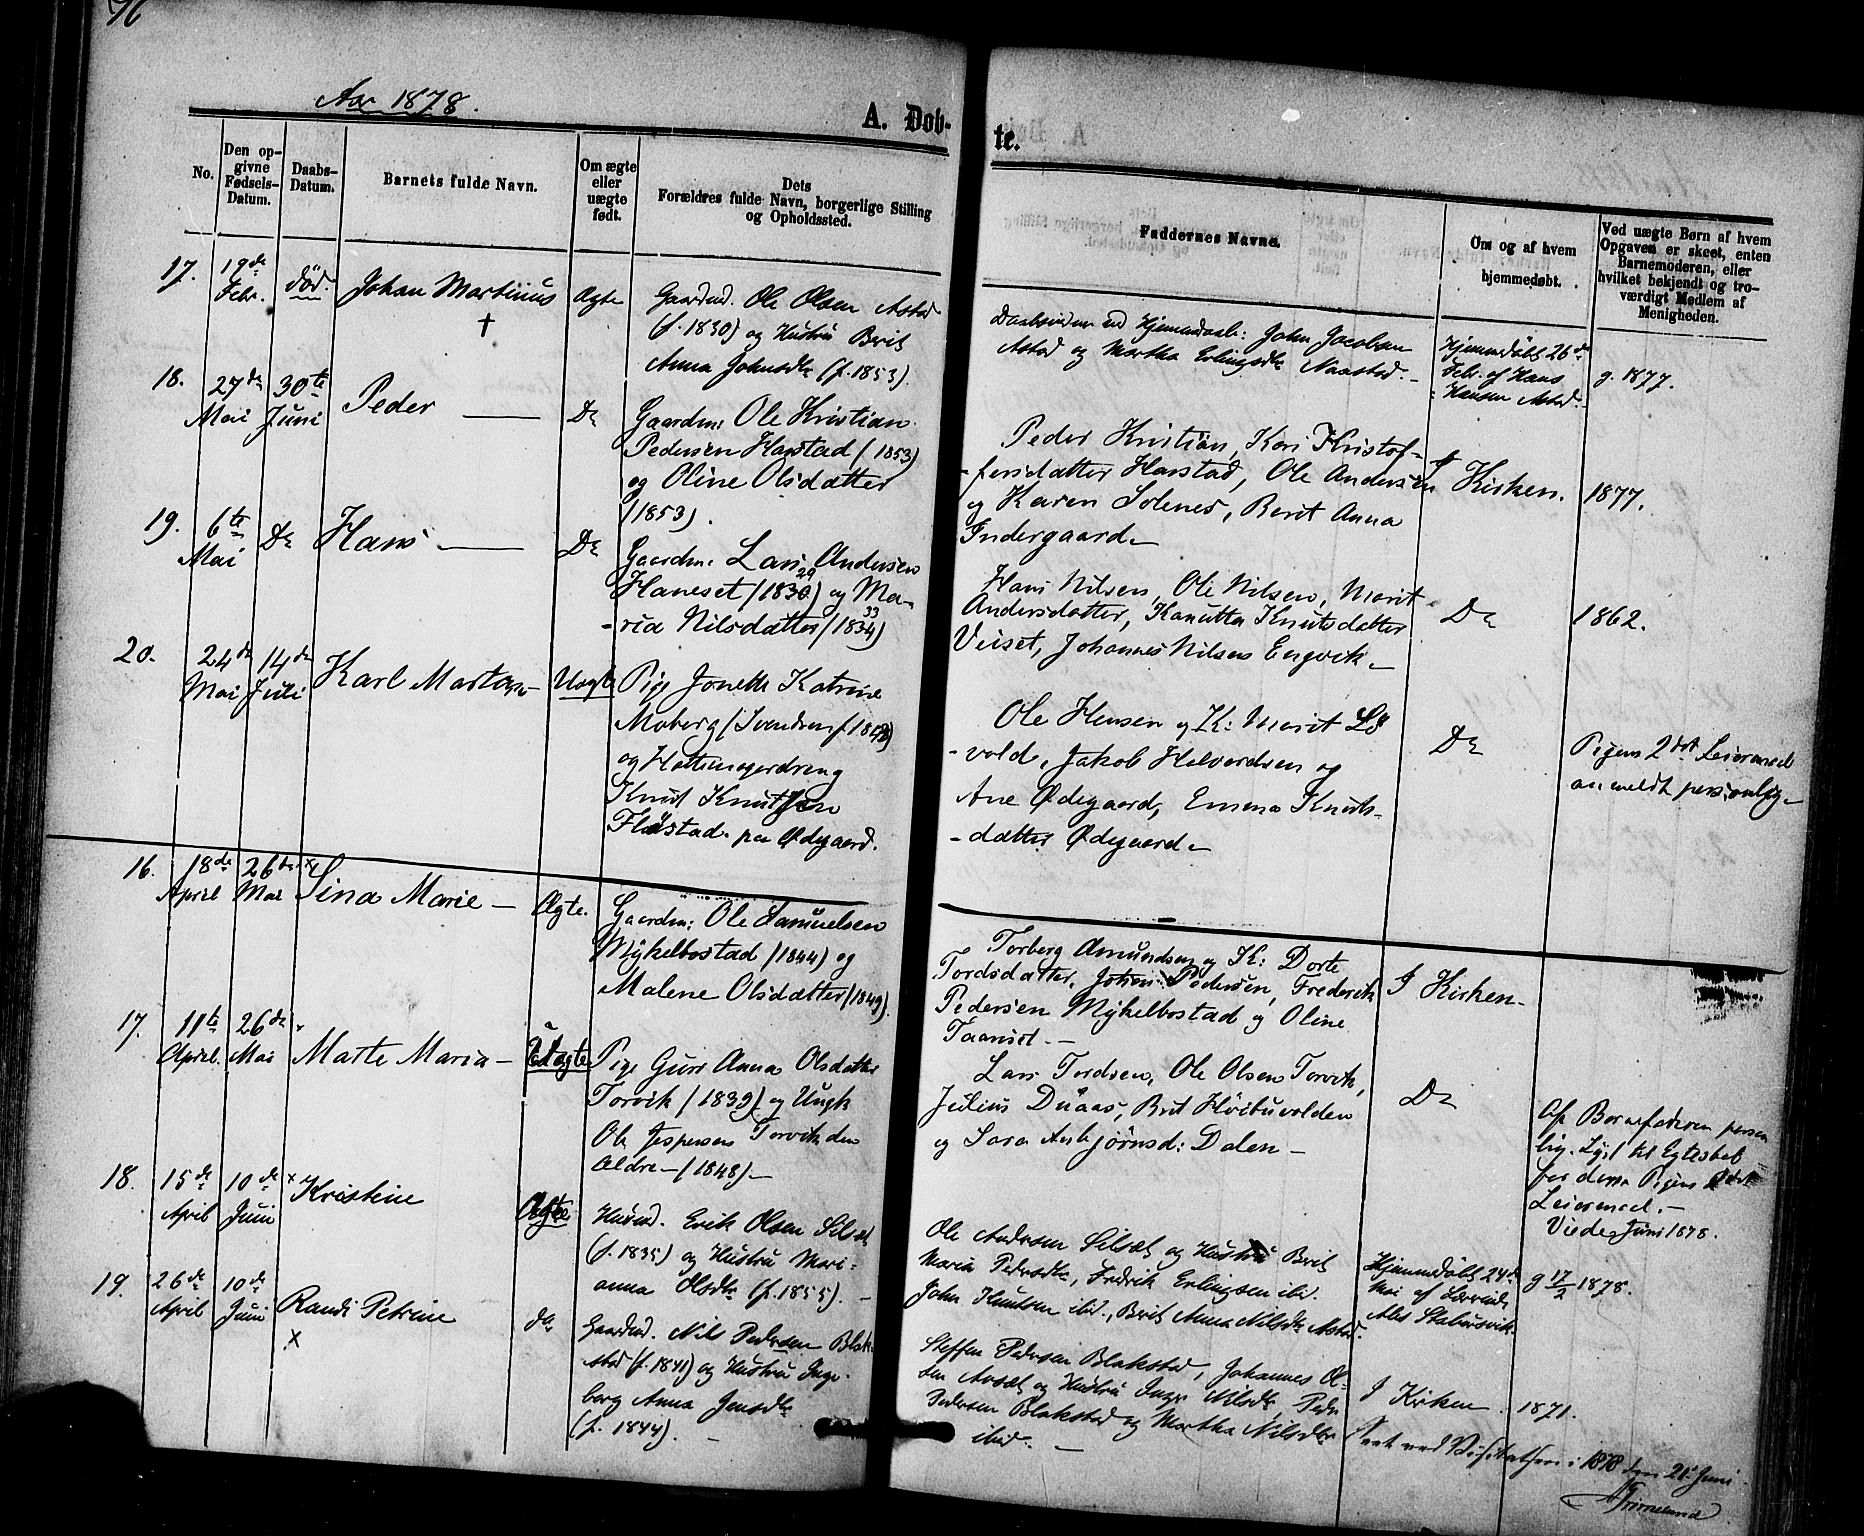 96
Aar 1878.
A. Døb-
te.
No.
Den op-
givne
Fødsels-
Datum.
Daabs-
Datum.
Barnets fulde Navn.
Om ægte
eller
uægte
født.
Dets
Forældres fulde Navn, borgerlige Stilling
og Opholdssted.
Faddernes Navne.
Om og af hvem
hjemmedøbt.
Ved uægte Børn af hvem
Opgaven er skeet, enten
Barnemoderen, eller
hvilket bekjendt og tro-
værdigt Medlem af
Menigheden.
17.
19de
Febr.
død.
Johan Martinus
†
Ægte
Gaardmd. Ole Olsen Astad
(f. 1830) og Hustru Berit
Anna Johnsdtr (f. 1853).
Hjemmedaab: John Jacobsen
Astad og Martha Erlingsdtr Naastad.-
Hjemmedøbt 26de
Febr. af Hans
Hansen Astad.-
g. 1877.
18.
27de
Mai
30te
Juni
Peder
Do
Gaardm: Ole Kristian
Pedersen Harstad (1853)
og Oline Olsdatter
(1853).
Peder Kristian, Kari Kristof-
-fersdatter Harstad, Ole Andersen
og Karen Solenes, Berit Anna
Indergaard-
I Kirken.
1877.
19.
6te
Mai
Do
Hans
Do
Gaardm: Lars Andersen
29
Haneset (1830) og Ma-
33
-ria Nilsdatter (1834)
Hans Nilsen, Ole Nilsen, Marit
Andersdatter, Kanutta Knutsdatter
Veiset, Johannes Nilsen Engvik-
Do
1862.
20.
24de
Mai
14de
Juli
Karl Martin-
Uægte
Pige Jonette Katrine
Moberg (Svendsen f. 1848)
og
Knut Knutsen
Flåstad paa Ødegaard.
Ole Hensen og K: Marit Lø
-vold, Jakob Halvordsen og
Ane Ødegaard, Emma Knuts-
-datter Ødegaard-
Do
Pigens 2det Leiermaal
anmeldt personlig-
16.
18de
April
26de
Mai
x
Sina Marie-
Ægte.
Gaardm: Ole Samuelsen
Mykelbostad (1844) og
Malene Olsdatter (1849).
Torberg Amundsen og K: Dorte
Tordsdatter, Johan Pedersen, Frederik
Pedersen Mykelbostad og Oline
Taanset.-
I Kirken-
17.
11te
April.
26de
Mai
Marte Maria-
Uægte
Pige Guri Anna Olsdatter
Torvik (1839) og Ungk
Ole Jespersen Torvik den
Ældre- (1848)-
Lars Tordsen, Ole Olsen Torvik,
Julius Duaas, Brit Høibuvolden
og Sara Asbjørnsd: Dalen-
Do
Af Barnefaderen person
lig. Lyst til Egteskab
før denne Pigens
Leiermaal.-
Viede Juni 1878.
18.
15de
April
10de
Juni
x
Kristine
Ægte
Husmd. Erik Olsen Silset
(f. 1835) og Hustru Mari-
anna Olsdtr (f. 1855).-
Ole Andersen Silset og Hustru Berit
Maria Pedersdtr, Fredrik Erlingsen ibid.
John Knutsen ibid., Berit Anna Nilsdtr Astad.
Hjemmedøbt 24de
Mai af Lærerinde
Ales Stabursvik.
g 17/2 1878.
19.
26de
April
10de
Juni
Randi Petrine
x
do
Gaardmd. Nils Pedersen Blak-
stad (f. 1841) og Hustru Inge-
borg Anna Jensdtr
(f. 1844).-
Steffen Pedersen Blakstad, Johannes Ol-
sen Avset og Hustru Inger Nilsdtr, Peder
Pedersen Blakstad og Martha Nilsdtr
ibid.-
I Kirken.
1871.
Seet ved Visitatsen i 1878 den 21. Juni.